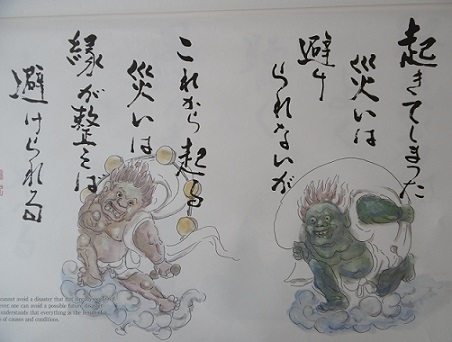 起きてしまった
災いは
避け
られないが
これから起る
災いは
縁が整えば
避けられる
cannot avoid a disaster that has
one can avoid a possible future
understands that everything is the
of causes and conditions.